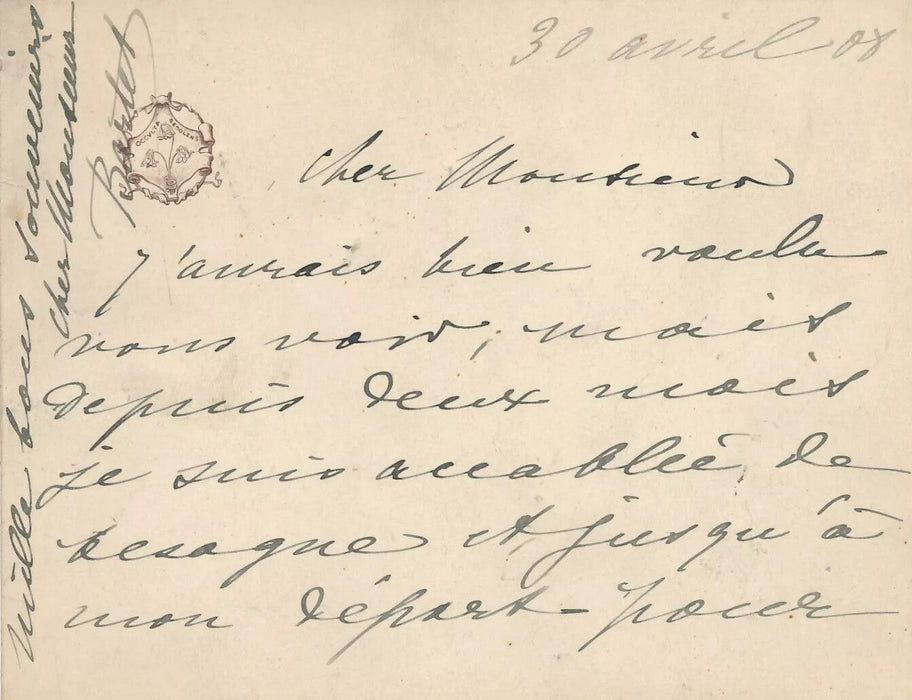 30 avril 08
OCCULTA REDOLENT
Cher Monsieur
J'aurais bien voulu
vous voir, mais
depuis deux mois
je suis accablée de
besogne et jusqu'à
mon départ pour
Mille bons souvenirs
cher Monsieur
Bartet